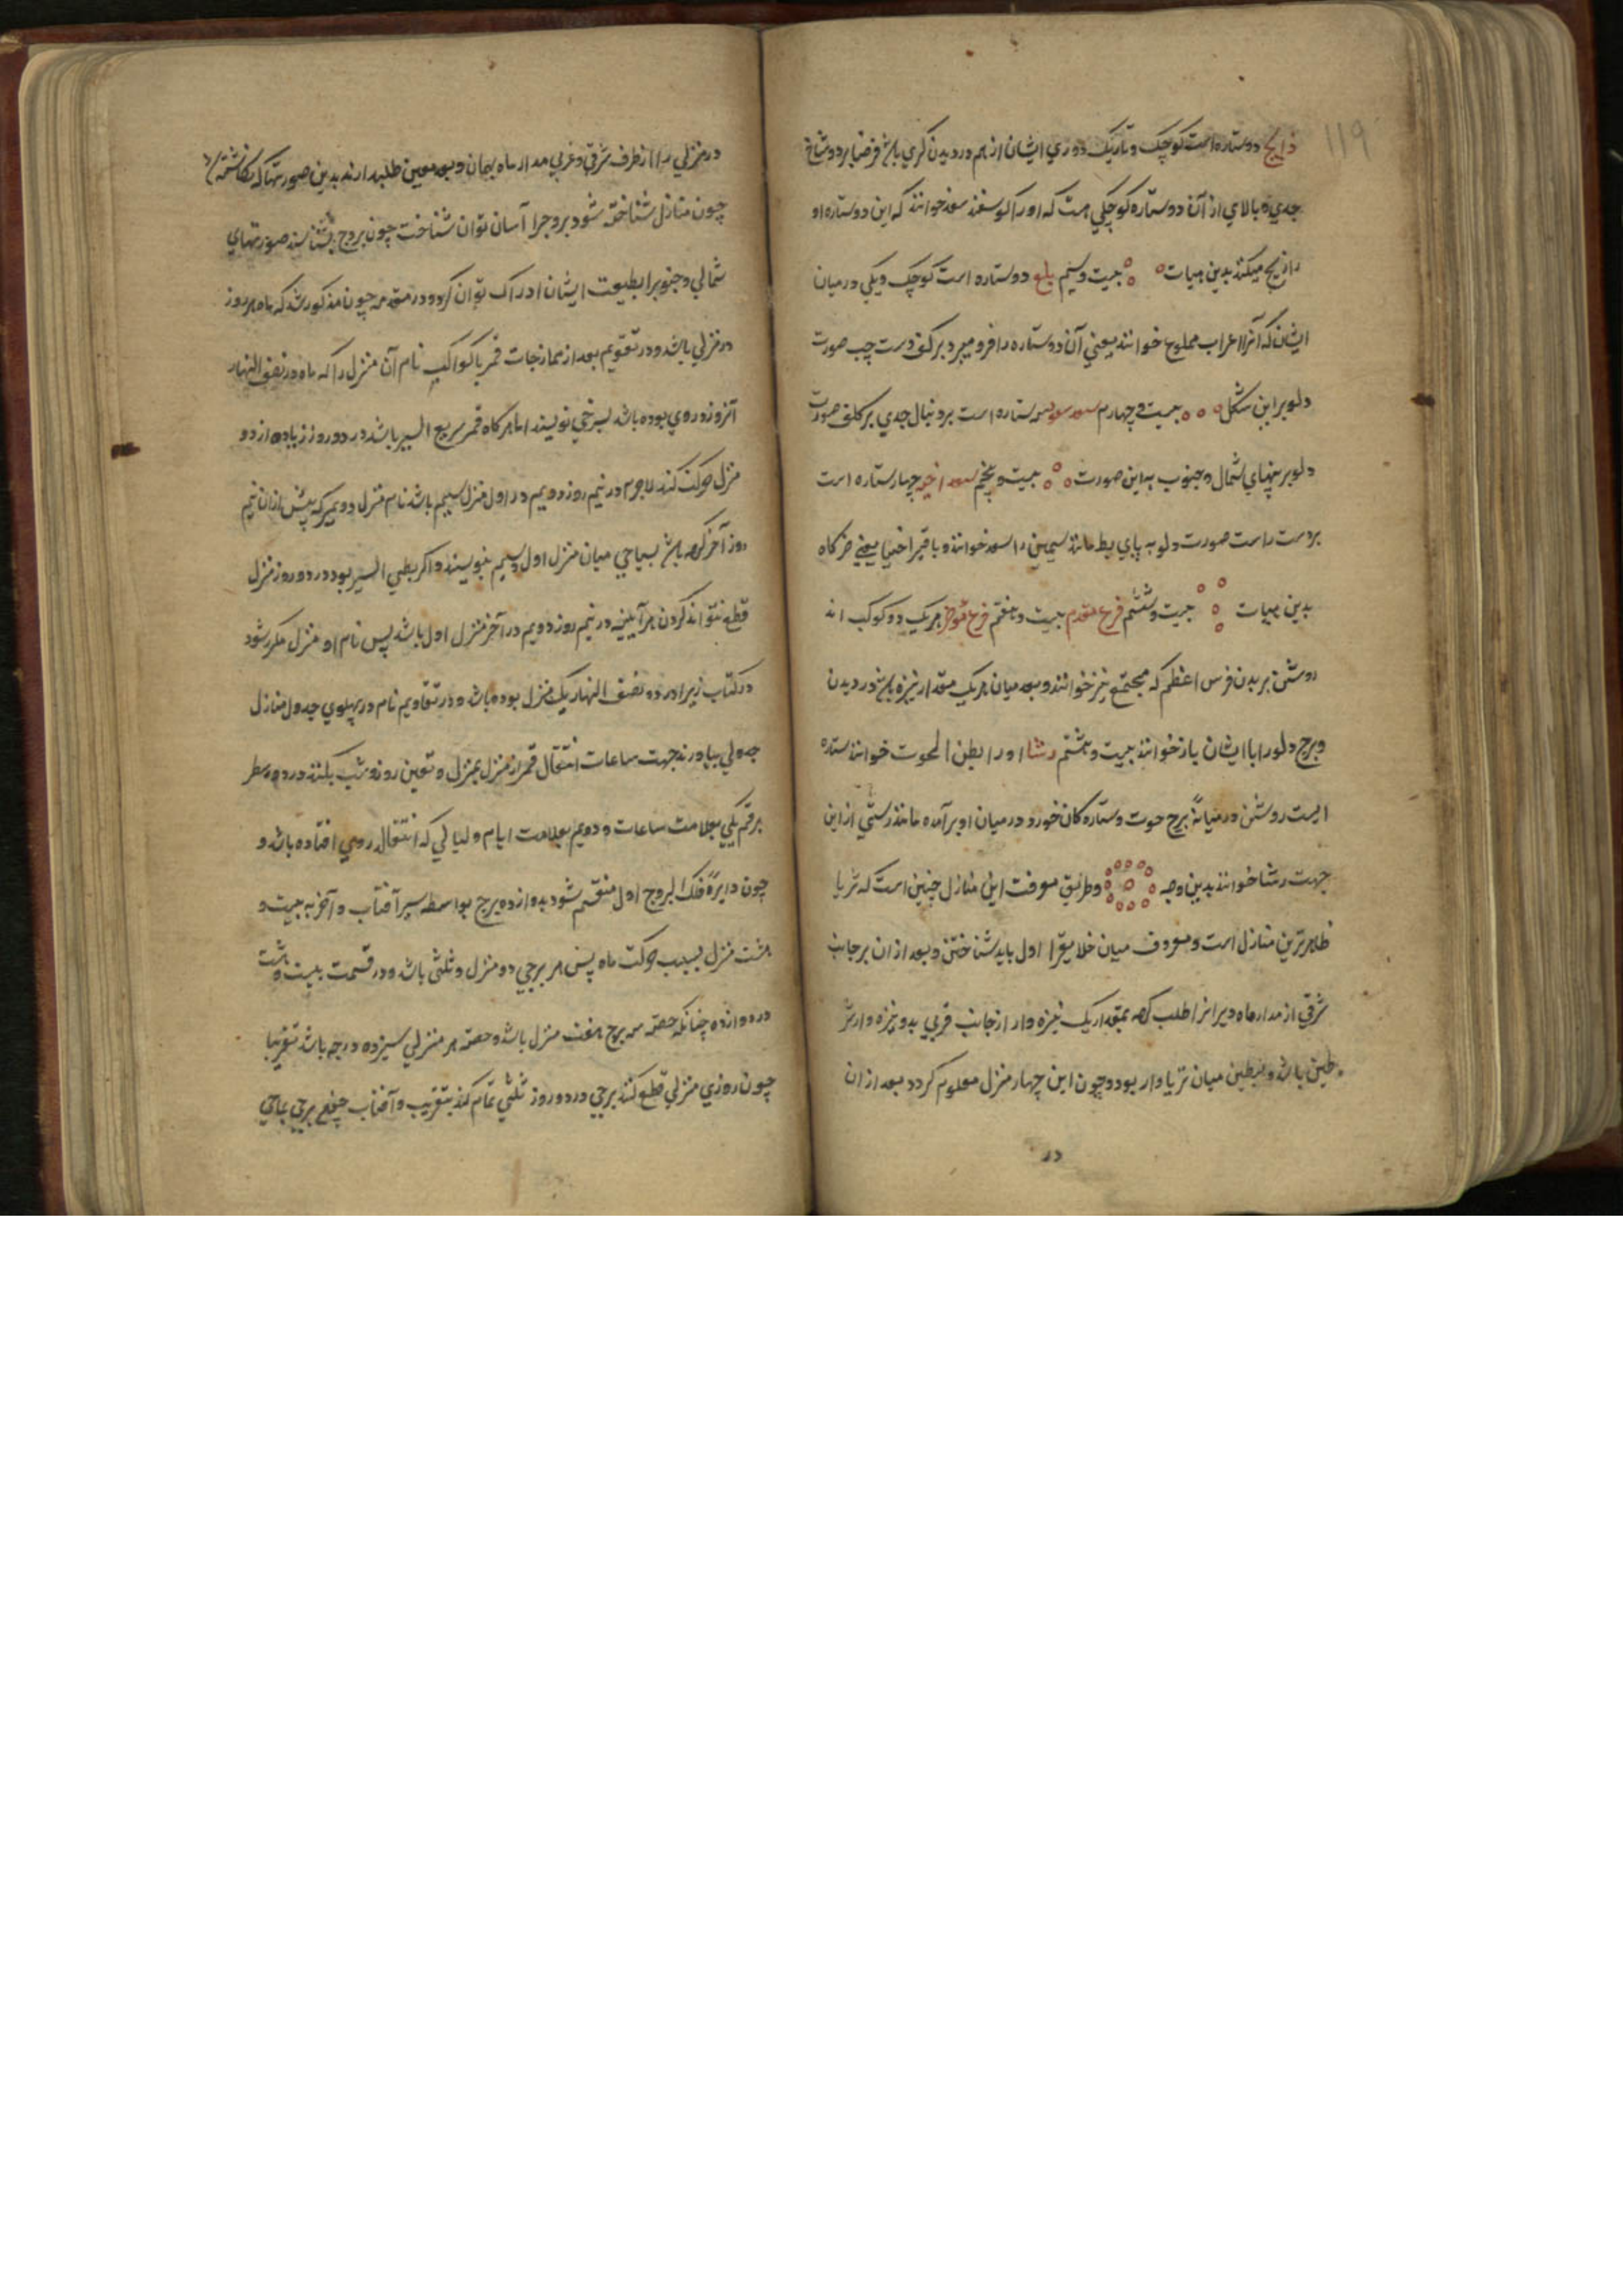 ۱۱۹
ذابح دو ستاره است کوچک و تاریک دوری ایشان از هم در دیدن گزی باشد فرضا بر دو شاخ
جدی و بالای از آن دو ستاره کوچکی هست که او را گوسفند سعد خوانند که این دو ستاره او
را ذبح میکنند بدین هیات بیست و سیم بلع دو ستاره است کوچک و یکی در میان
ایشان که آنرا اعراب مبلوع خوانند یعنی آن دو ستاره را فرو میبرد بر کف دست چپ صورت
دلو بر این شکل بیست و چهارم سعد سعود سه ستاره است بر دنبال جدی بر کتف صورت
دلو بر پهنای شمال و جنوب به این صورت بیست و پنجم سعد اخبیه چهار ستاره است
بر دست راست صورت دلو به پای بط مانند سیمین را سعد خوانند و باقی را خبا یعنی خرگاه
بدین هیات بیست و ششم فرع مقدم بیست و هفتم فرع مؤخر هر یک دو کوکب اند
روشن بر بدن فرس اعظم که مجنح نیز خوانند و بعد میان هر یک مقدار نیزه باشد در دیدن
و برج دلو را با ایشان باز خوانند بیست و هشتم رشا او را بطن الحوت خوانند ستاره
ایست روشن در میانهٔ برج حوت و ستاره کان خورد در میان او بر آمده مانند رسنی از این
جهت رشا خوانند بدین وجه و طریق معرفت این منازل چنین است که ثریا
ظاهرترین منازل است و معروف میان خلایق را اول باید شناختن و بعد از ان بر جانب
شرقی از مدار ماه دبران را طلب کند بمقدار یک نیزه وار از جانب غربی بدو نیزه وار شر
طین باشد و بطین میان ثریا وار بود و چون این چهار منزل معلوم کردد بعد از ان
در
در منزلی را از طرف شرقی و غربی مدار ماه بهمان و بعد معین طلب دارند بدین صورتها که نکاشته
چون منازل شناخته شود بروج را آسان توان شناخت چون بروج بشناسند صورتهای
شمالی و جنوبی را بطبیعت ایشان ادراک توان کرد و در مقدمه چون مذکور شد که ماه هر روز
در منزلی باشد و در تقویم بعد از ممازجات قمر با کواکب نام آن منزل را که ماه در نصف النهار
آنروز در وی بوده باشد بسرخی نویسند اما هرگاه قمر سریع السیر باشد در دو روز زیاده از دو
منزل حرکت کند لاجرم در نیم روز دویم در اول منزل سیم باشد نام منزل دویم که پیش از ان نیم
روز آخر کرده باشد بسیاهی میان منزل اول و سیم بنویسند و اگر بطی السیر بود در دو روز منزل
قطع نتواند کردن هر آینه در نیم روز دویم در آخر منزل اول باشد پس نام او منزل مکرر شود
در کتاب زیرا در دو نصف النهار یک منزل بوده باشد و در تقاویم نام در پهلوی جدول منازل
جدولی بیاورند جهت ساعات انتقال قمر از منزل بمنزل و تعین روز و شب بکنند در دو سطر
برقم یکی بعلامت ساعات و دویم بعلامت ایام و لیالی که انتقال در وی افتاده باشد و
چون دایرهٔ فلک البروج اول منقسم شود بدوازده برج بواسطه سیر آفتاب و آخر به بیست و
هشت منزل بسبب حرکت ماه پس هر برجی دو منزل و ثلثی باشد و در قسمت بیست و هشت
در دوازده چنانکه حصه سه برج هفت منزل باشد و حصه هر منزلی سیزده درجه باشد تقریبا
چون روزی منزلی قطع کند برجی در دو روز ثلثی تمام کند بتقریب و آفتاب چون برجی بماهی